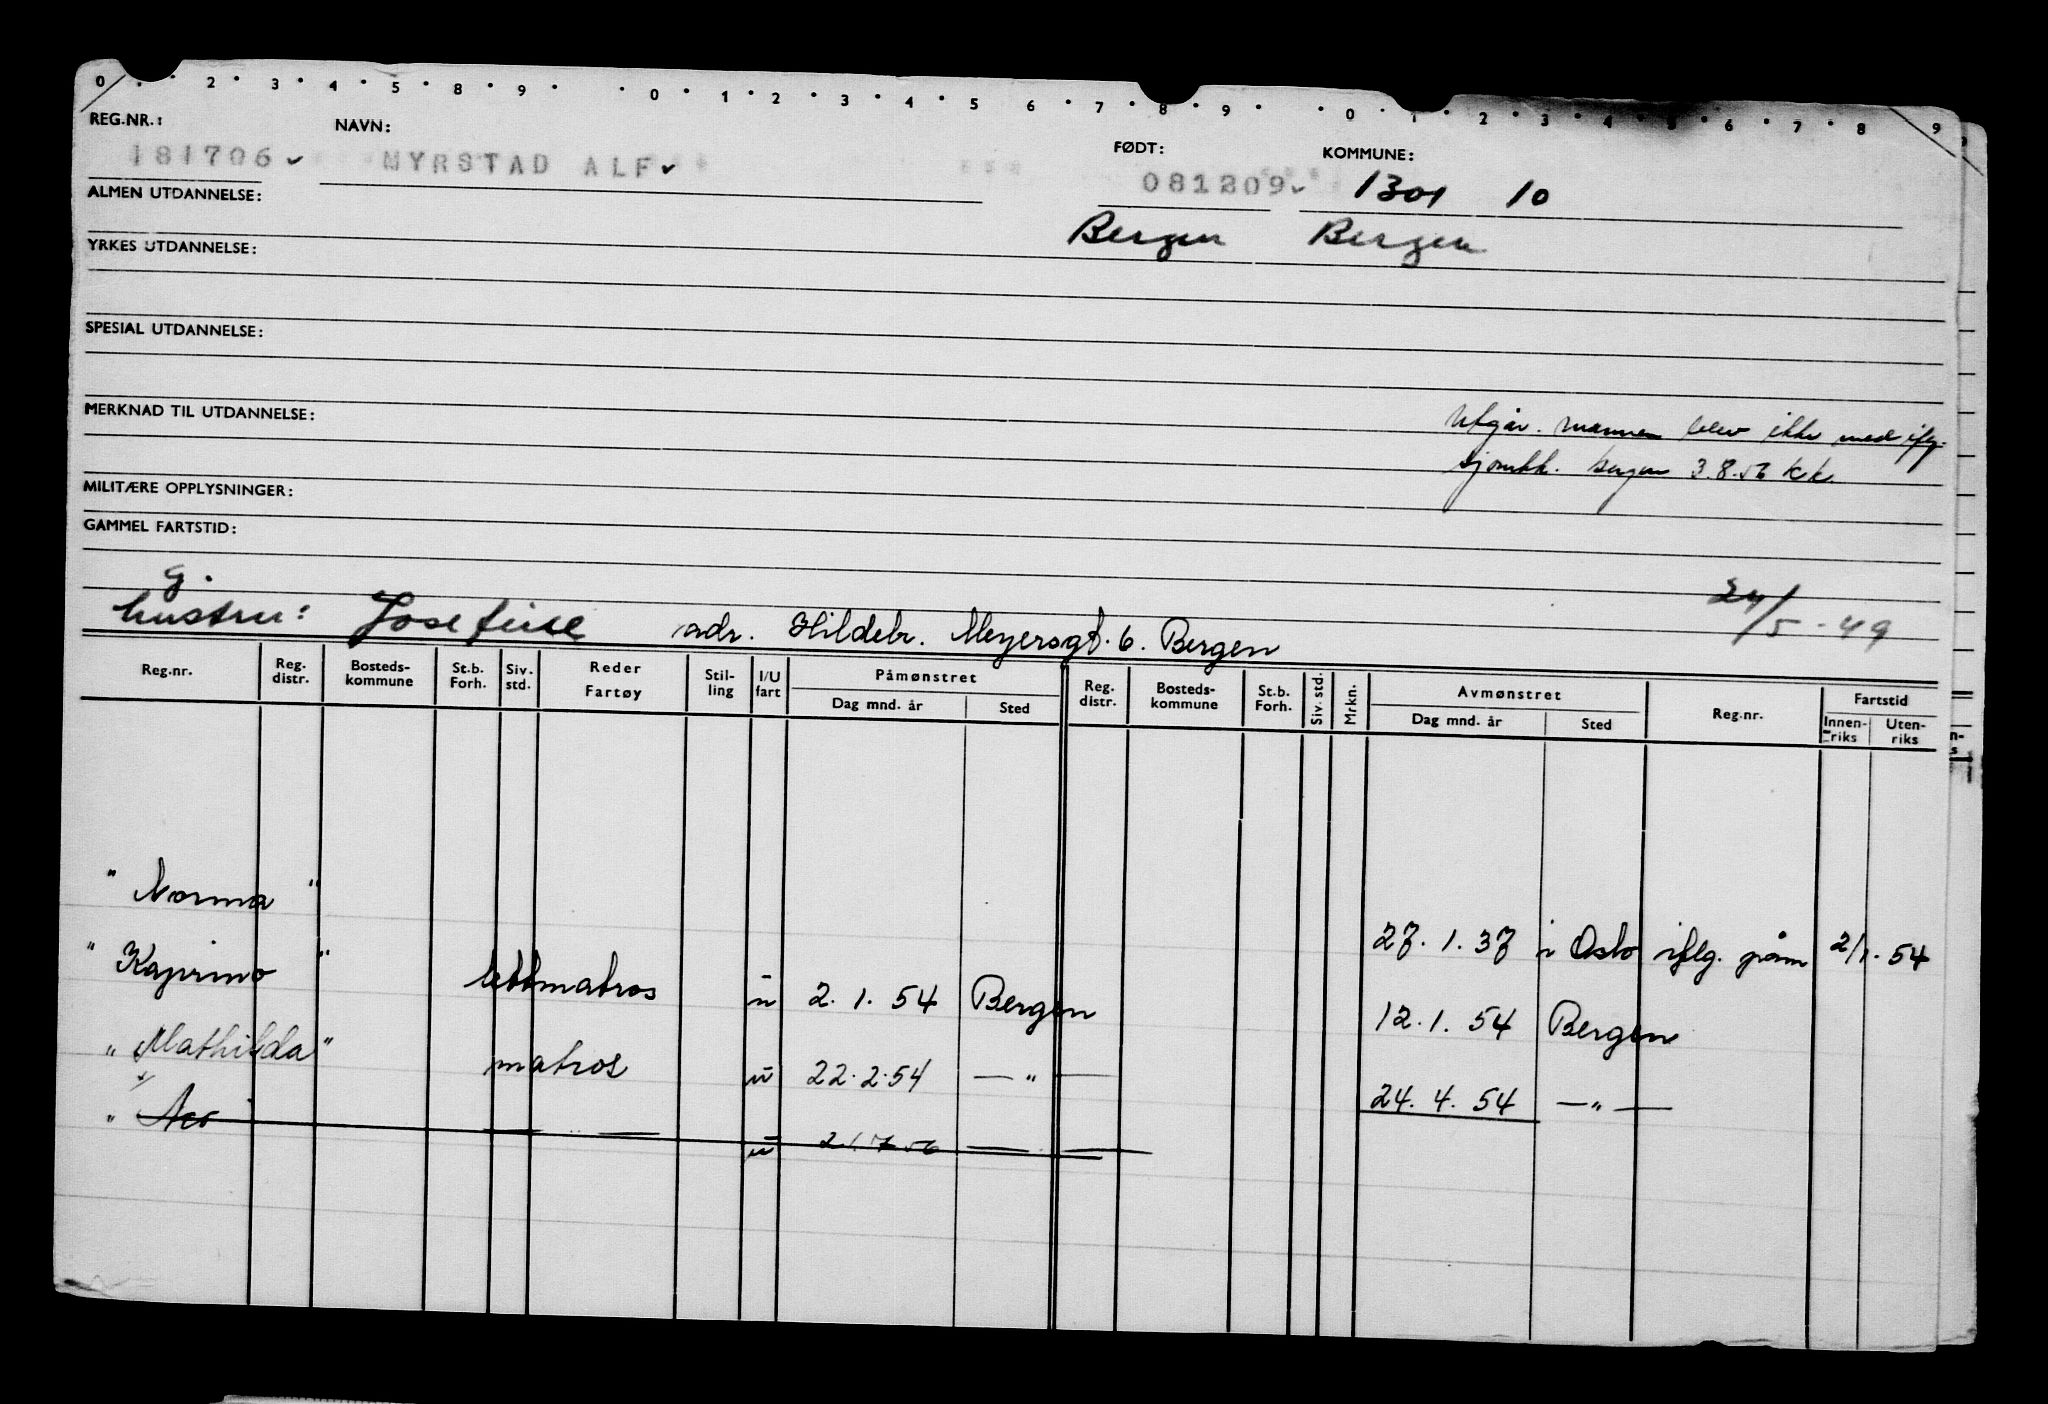 0 . . 2 . 3 . 4 . 5 . 8 . 9 . . 0 . 1 . 2 . 3 . 4 . 5 6 . 7 . 8 . 9 . . 0 . 1 . 2 . 3 . 4 . 5 . 6 . 7 . 8 9
REG.NR.: NAVN: FØDT: KOMMUNE:
181706 MYRSTAD ALF 081209 1301 10
ALMEN UTDANNELSE:
Bergen Bergen
YRKES UTDANNELSE:
SPESIAL UTDANNELSE:
MERKNAD TIL UTDANNELSE:
Utgår. mannen blev ikke med iflg.
sjømkk. bergen 3.8.56 kk.
MILITÆRE OPPLYSNINGER:
GAMMEL FARTSTID:
g.
hustru: Josefine adr. Hildebr. Meyersgt. 6. Bergen 24/5-49
Reg.nr. Reg. distr. Bosteds-kommune St.b. Forh. Siv. std. Reder Fartøy Stil-ling I/U fart Påmønstret Dag mnd. år Sted Reg. distr. Bosteds-kommune St.b. Forh. Siv. std. Mrkn. Avmønstret Dag mnd. år Sted Reg.nr. Fartstid Innen-riks Uten-riks
" Norma " 27. 1. 37 i Oslo iflg. påm 2/1. 54
" Kaprino " lettmatros u 2. 1. 54 Bergen 12. 1. 54 Bergen
" Mathilda " matros u 22. 2. 54 — " — 24. 4. 54 — " —
" — " — u — —